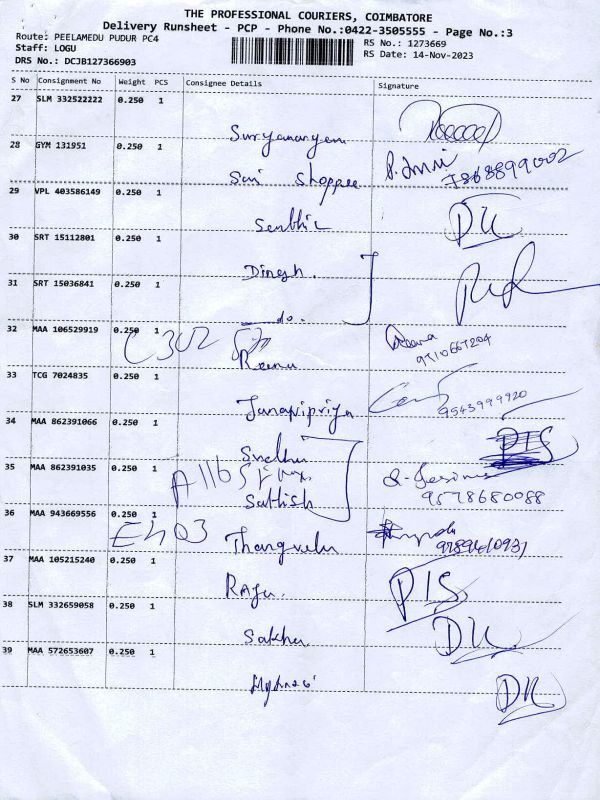 THE PROFESSIONAL COURIERS, COIMBATORE
Delivery Runsheet - PCP - Phone No.:0422-3505555 - Page No.:3
Route: PEELAMEDU PUDUR PC4
Staff: LOGU
DRS No.: DCJB127366903
RS No.: 1273669
RS Date: 14-Nov-2023
S No Consignment No Weight PCS Consignee Details Signature
27 SLM 332522222 0.250 1
Suryanarayan
28 GYM 131951 0.250 1
Sai Shoppee 7868899002
29 VPL 403586149 0.250 1
Senthil
30 SRT 15112801 0.250 1
Dinesh.
31 SRT 15036841 0.250 1
do.
32 MAA 106529919 0.250 1
C302
Reena 9710667204
33 TCG 7024835 0.250 1
Janavipriya 9543999920
34 MAA 862391066 0.250 1
Sudha PIS
35 MAA 862391035 0.250 1
Sathish 9578680088
36 MAA 943669556 0.250 1
E403
Thangvelu
37 MAA 105215240 0.250 1
Raju. PIS
38 SLM 332659058 0.250 1
Sakthi
39 MAA 572653607 0.250 1